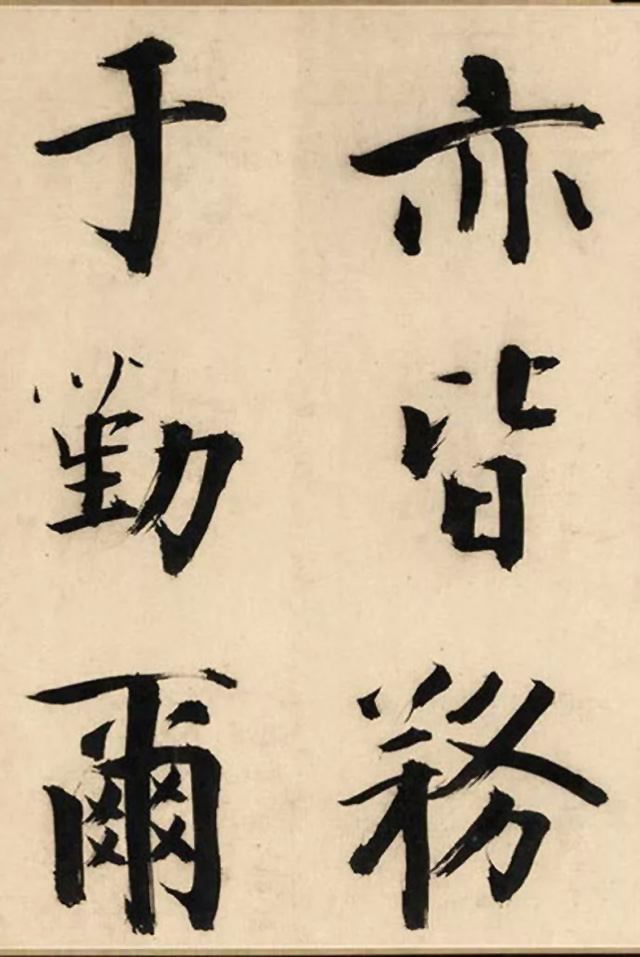 亦皆務
于勤爾